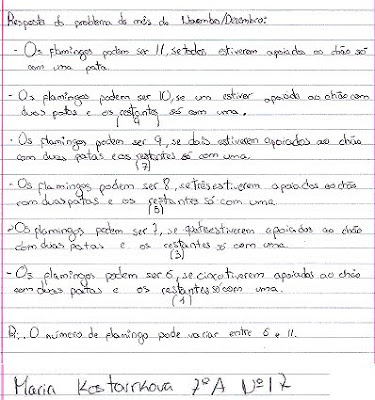 Resposta do problema do mês de Novembro/Dezembro:
- Os flamingos podem ser 11, se todos estiverem apoiados ao chão só
com uma pata.
- Os flamingos podem ser 10, se um estiver apoiado ao chão com
duas patas e os restantes só com uma.
(9)
- Os flamingos podem ser 9, se dois estiverem apoiados ao chão
com duas patas e os restantes só com uma.
(7)
- Os flamingos podem ser 8, se três estiverem apoiados ao chão
com duas patas e os restantes só com uma.
(5)
- Os flamingos podem ser 7, se quatro estiverem apoiados ao chão
com duas patas e os restantes só com uma.
(3)
- Os flamingos podem ser 6, se cinco tiverem apoiados ao chão
com duas patas e os restantes só com uma.
(1)
R: O número de flamingo pode variar entre 6 e 11.
Maria Kostairkova 7º A Nº 17